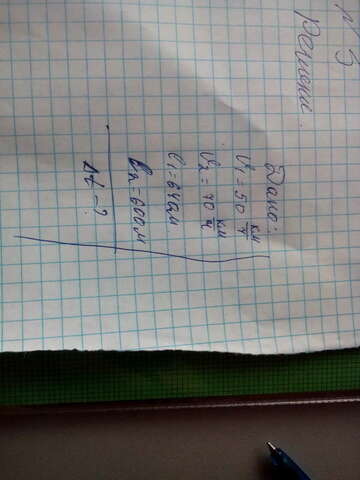 N 3
Решение.
Дано:
V₁ = 50 км/ч
V₂ = 40 км/ч
l₁ = 640м
l₂ = 600м
Δt - ?